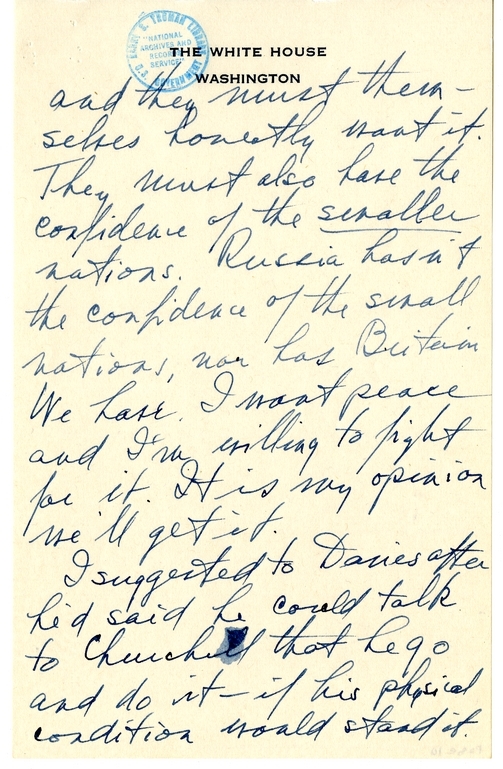 HARRY S. TRUMAN LIBRARY
"NATIONAL
ARCHIVES AND
RECORDS
SERVICE"
U.S. GOVERNMENT
THE WHITE HOUSE
WASHINGTON
and they must them-
selves honestly want it.
They must also have the
confidence of the smaller
nations. Russia hasn't
the confidence of the small
nations, nor has Britain
We have. I want peace
and I'm willing to fight
for it. It is my opinion
we'll get it.
I suggested to Davies after
he'd said he could talk
to Churchill that he go
and do it—if his physical
condition would stand it.